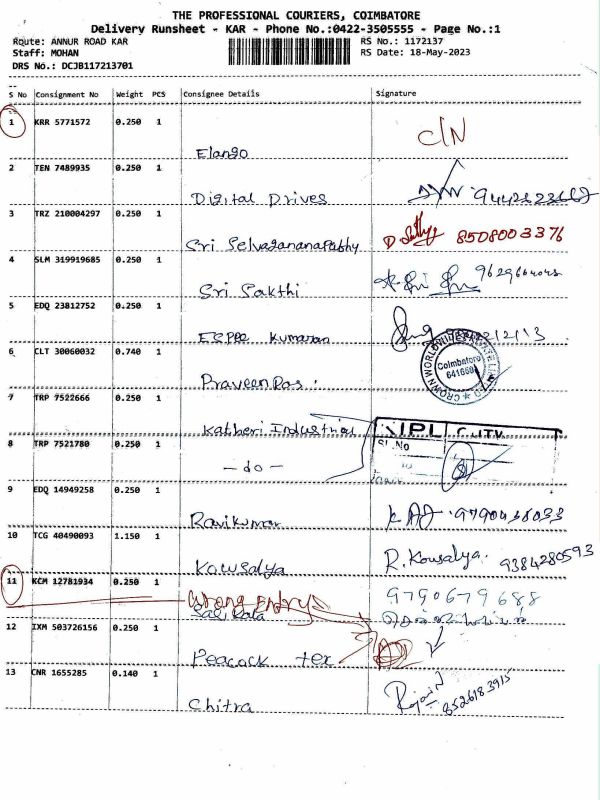 THE PROFESSIONAL COURIERS, COIMBATORE
Delivery Runsheet - KAR - Phone No.:0422-3505555 - Page No.:1
Route: ANNUR ROAD KAR
RS No.: 1172137
Staff: MOHAN
RS Date: 18-May-2023
DRS No.: DCJB117213701
S No Consignment No Weight PCS Consignee Details Signature
1 KRR 5771572 0.250 1
Elango
C/N
2 TEN 7489935 0.250 1
Digital Drives
3 TRZ 210004297 0.250 1
Sri Selvagananapathy
8508003376
4 SLM 319919685 0.250 1
Sri Sakthi
5 EDQ 23812752 0.250 1
ESPPE Kumaran
6 CLT 30060032 0.740 1
Praveen Ras.
CROWN WORLDWIDE PRIVATE LIMITED
Coimbatore
7 TRP 7522666 0.250 1
Katheri Industrial
8 TRP 7521780 0.250 1
- do -
SI.No
9 EDQ 14949258 0.250 1
Ravikumar
10 TCG 40490093 1.150 1
Kowsalya
R. Kowsalya. 9384280593
11 KCM 12781934 0.250 1
Wrong entry
Sasi Kala
9790679688
12 IXM 503726156 0.250 1
Peacock tex
13 CNR 1655285 0.140 1
Chitra
8526183915